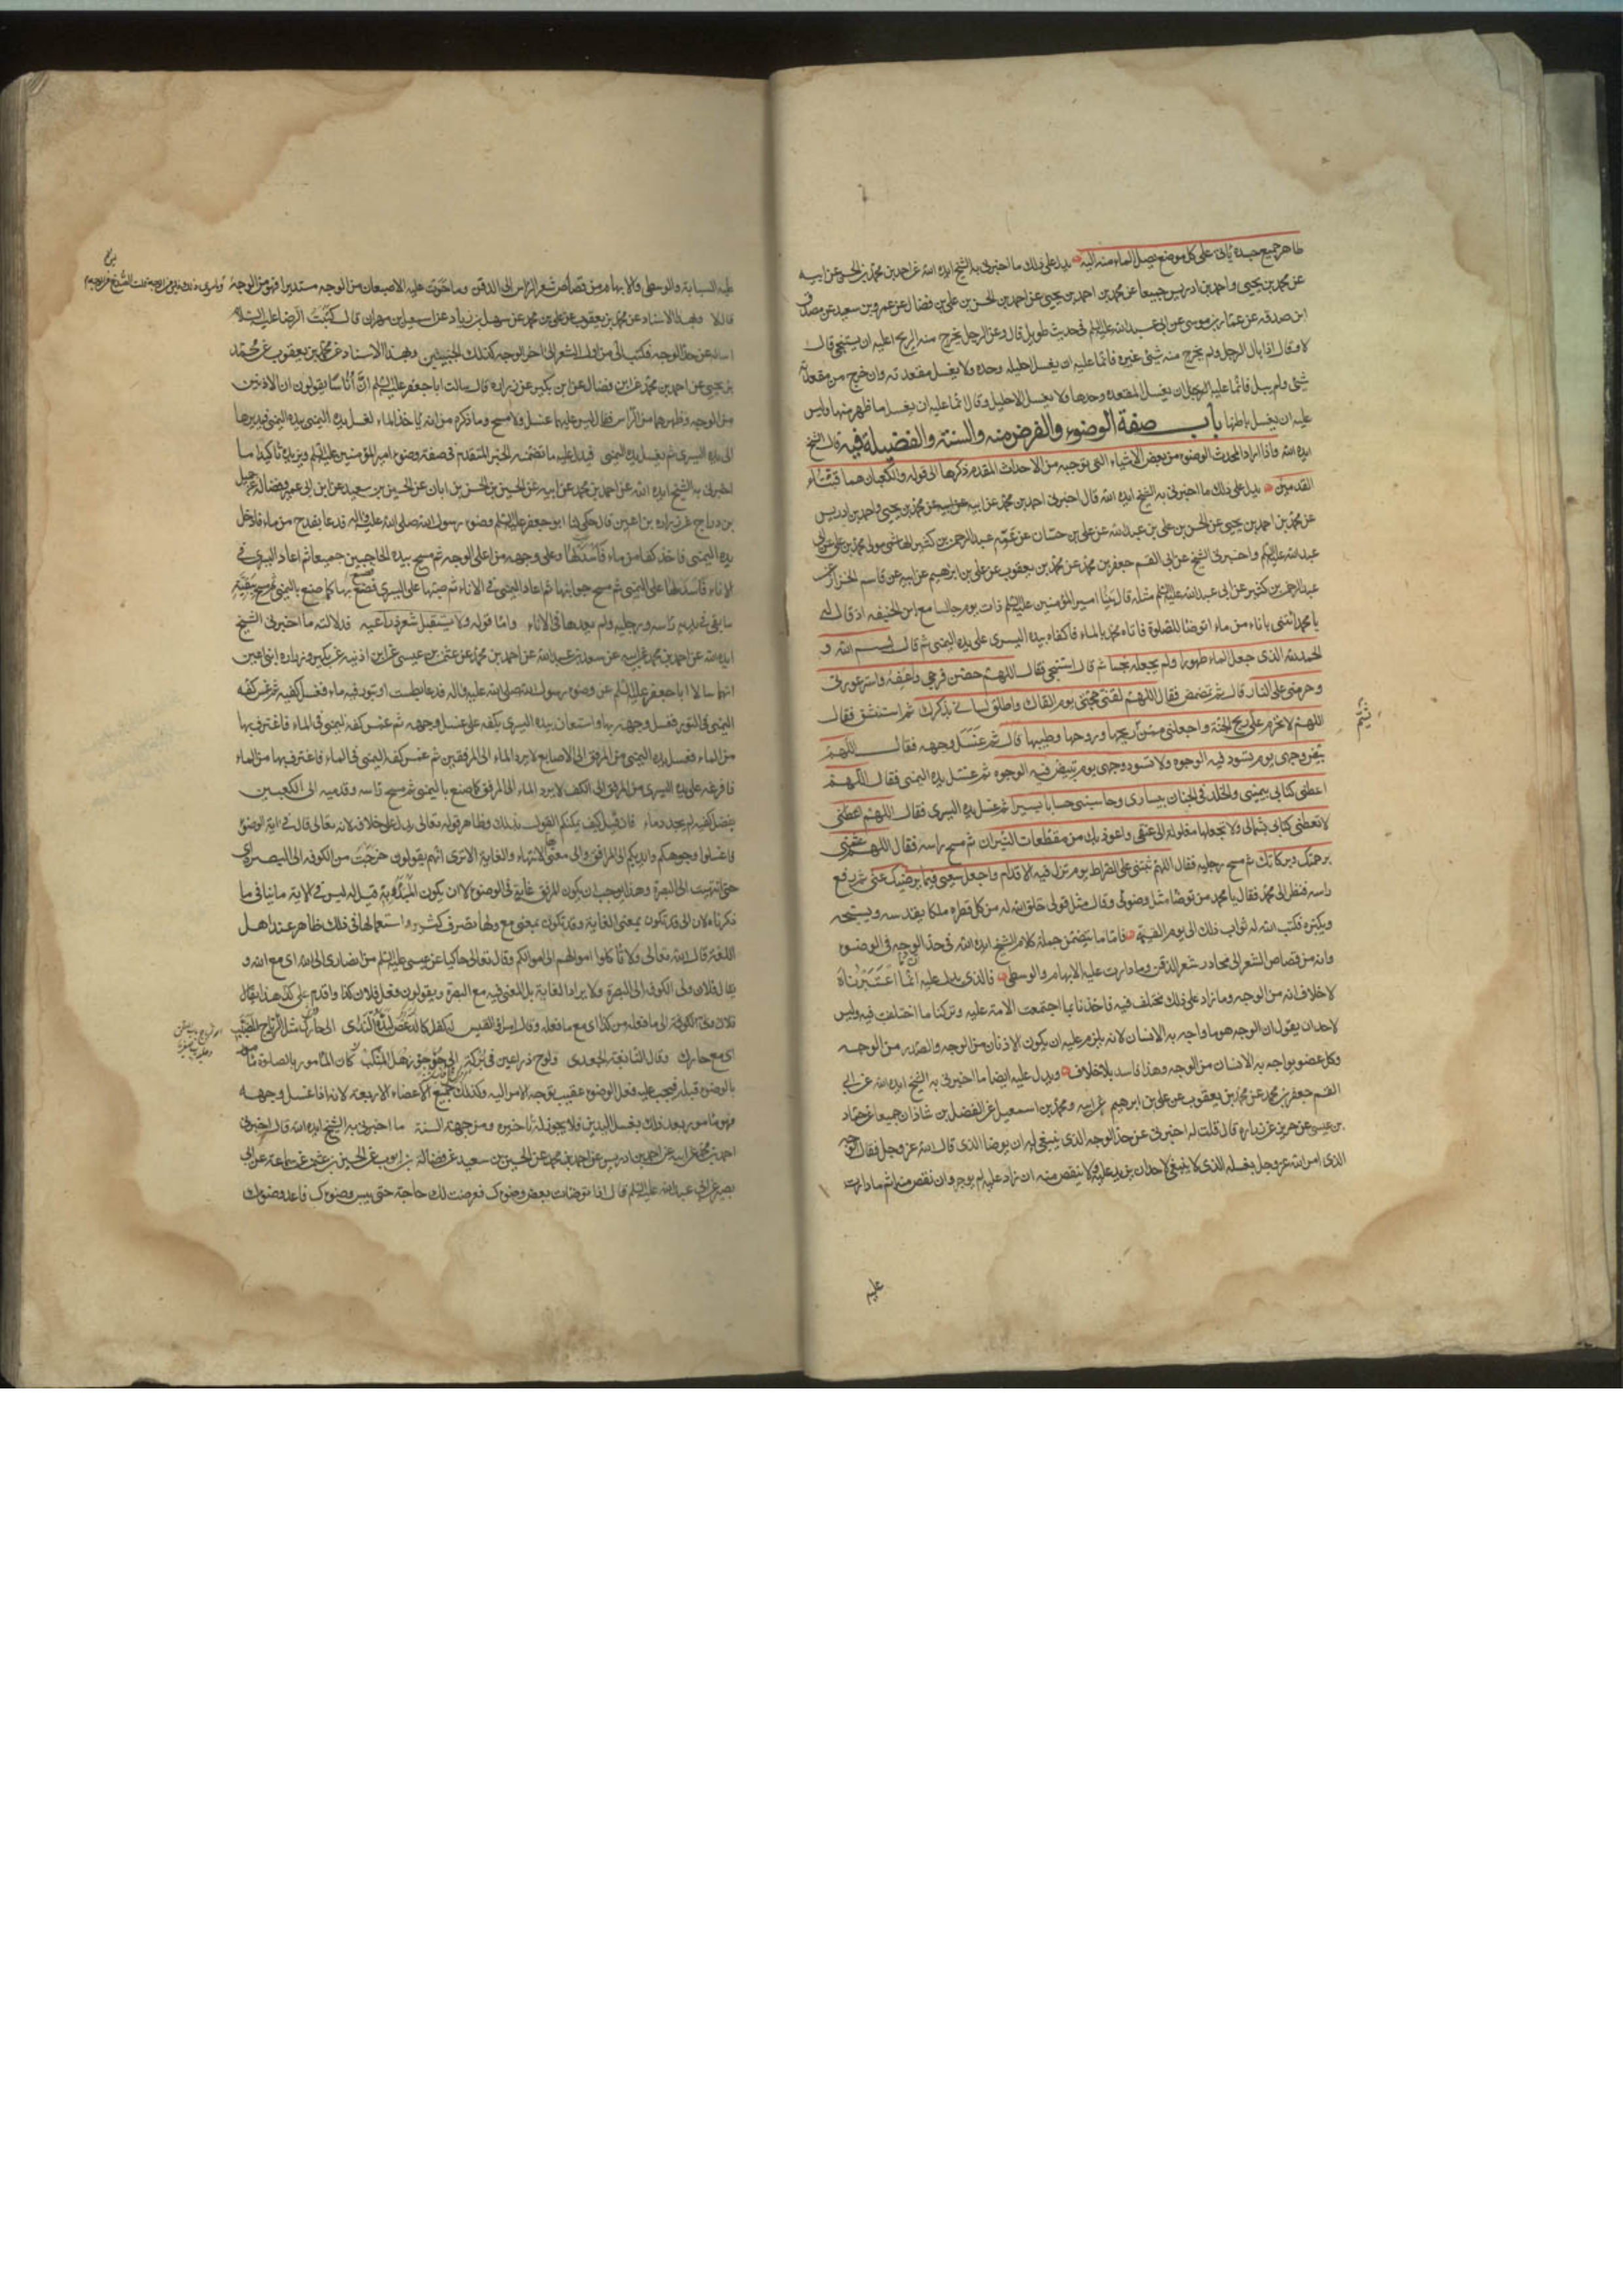 ظاهر جميع جسده ياتى على كل موضع يصل الماء منه اليه يدل على ذلك ما اخبرنى به الشيخ ايده الله عن احمد بن محمد بن الحسن عن ابيه
عن محمد بن يحيى واحمد بن ادريس جميعا عن محمد بن احمد بن يحيى عن احمد بن الحسن بن على بن فضال عن عمرو بن سعيد عن مصدق
ابن صدقه عن عمار بن موسى عن ابى عبد الله عليه السلم فى حديث طويل قال وعن الرجل يخرج منه الريح اعليه ان يستنجى قال
لا وقال اذا بال الرجل ولم يخرج منه شئ غيره فانما عليه ان يغسل احليله وحده ولا يغسل مقعدته وان خرج من مقعدته
شئ ولم يبل فانما عليه ان يغسل المقعدة وحدها ولا يغسل الاحليل وقال انما عليه ان يغسل ما ظهر منها وليس
عليه ان يغسل باطنها باب صفة الوضوء والفرض منه والسنة والفضيلة فيه قال الشيخ
ايده الله واذا اراد المحدث الوضوء من بعض الاشياء التى توجبه من الاحداث المقدم ذكرها الى قوله والكعبان هما قبتا
القدمين يدل على ذلك ما اخبرنى به الشيخ ايده الله قال اخبرنى احمد بن محمد عن ابيه عن محمد بن يحيى واحمد بن ادريس
عن محمد بن احمد بن يحيى عن الحسن بن على بن عبد الله عن على بن حسان عن عمه عبد الرحمن بن كثير الهاشمى مولى محمد بن على عن ابى
عبد الله عليه السلم واخبرنى الشيخ عن ابى القسم جعفر بن محمد عن محمد بن يعقوب عن على بن ابرهيم عن ابيه عن قاسم الخزاز عن
عبد الرحمن بن كثير عن ابى عبد الله عليه السلم مثله قال بينا امير المؤمنين عليه السلم ذات يوم جالسا مع ابن الحنفيه اذ قال له
يا محمد ائتنى باناء من ماء اتوضا للصلوة فاتاه محمد بالماء فاكفاه بيده اليسرى على يده اليمنى ثم قال بسم الله و
الحمد لله الذى جعل الماء طهورا ولم يجعله نجسا ثم قال استنجى فقال اللهم حصن فرجى واعفه واستر عورتى
وحرمنى على النار قال ثم تمضمض فقال اللهم لقنى حجتى يوم القاك واطلق لسانى بذكرك ثم استنشق فقال
اللهم لا تحرم على ريح الجنة واجعلنى ممن ريحها وروحها وطيبها قال ثم غسل وجهه فقال اللهم
بيض وجهى يوم تسود فيه الوجوه ولا تسود وجهى يوم تبيض فيه الوجوه ثم غسل يده اليمنى فقال اللهم
اعطنى كتابى بيمينى والخلد فى الجنان بيسارى وحاسبنى حسابا يسيرا ثم غسل يده اليسرى فقال اللهم
لا تعطنى كتابى بشمالى ولا تجعلها مغلولة الى عنقى واعوذ بك من مقطعات النيران ثم مسح راسه فقال اللهم غشنى
برحمتك وبركاتك ثم مسح رجليه فقال اللهم ثبتنى على الصراط يوم تزل فيه الاقدام واجعل سعيى فيما يرضيك عنى ثم رفع
راسه فنظر الى محمد فقال يا محمد من توضا مثل وضوئى وقال مثل قولى خلق الله له من كل قطره ملكا يقدسه ويسبحه
ويكبره فكتب الله له ثواب ذلك الى يوم القيمة فاما ما يتضمن جملة كلام الشيخ ايده الله فى حد الوجه فى الوضوء
وانه من قصاص الشعر الى محادر شعر الذقن وما دارت عليه الابهام والوسطى فالذى يدل عليه انما اعتبرناه
لا خلاف انه من الوجه وما زاد على ذلك مختلف فيه فاخذنا بما اجتمعت الامة عليه وتركنا ما اختلفت فيه وليس
لاحد ان يقول ان الوجه هو ما واجه به الانسان لانه يلزم عليه ان يكون الاذنان من الوجه والصدر من الوجه
وكل عضو يواجه به الانسان من الوجه وهذا فاسد بلا خلاف ويدل عليه ايضا ما اخبرنى به الشيخ ايده الله عن ابى
القسم جعفر بن محمد عن محمد بن يعقوب عن على بن ابرهيم عن ابيه ومحمد بن اسمعيل عن الفضل بن شاذان جميعا عن حماد
بن عيسى عن حريز عن زراره قال قلت له اخبرنى عن حد الوجه الذى ينبغى له ان يوضا الذى قال الله عز وجل فقال الوجه
الذى امر الله عز وجل بغسله الذى لا ينبغى لاحد ان يزيد عليه ولا ينقص منه ان زاد عليه لم يوجر وان نقص منه اثم ما دارت
عليه
عليه السبابة والوسطى والابهام من قصاص شعر الراس الى الذقن وما حوت عليه الاصبعان من الوجه مستديرا فهو من الوجه
قال لا وبهذا الاسناد عن محمد بن يعقوب عن على بن محمد عن سهل بن زياد عن اسمعيل بن مهران قال كتبت الى الرضا عليه السلام
اساله عن حد الوجه فكتب الى من اول الشعر الى اخر الوجه كذلك الجبينين وبهذا الاسناد عن محمد بن يعقوب عن محمد
بن يحيى عن احمد بن محمد عن ابن فضال عن ابن بكير عن زراره قال سالت ابا جعفر عليه السلم ان اناسا يقولون ان الاذنين
من الوجه وظهرهما من الراس فقال ليس عليهما غسل ولا مسح وما ذكره من انه ياخذ الماء لغسل يده اليمنى بيده اليمنى فيديرها
الى يده اليسرى ثم يغسل يده اليمنى فيدل عليه ما تضمنه الخبر المتقدم فى صفة وضوء امير المؤمنين عليه السلم ويزيده تاكيدا ما
اخبرنى به الشيخ ايده الله عن احمد بن محمد عن ابيه عن الحسين بن الحسن بن ابان عن الحسين بن سعيد عن ابن ابى عمير وفضالة عن جميل
بن دراج عن زراره بن اعين قال حكى لنا ابو جعفر عليه السلم وضوء رسول الله صلى الله عليه واله فدعا بقدح من ماء فادخل
يده اليمنى فاخذ كفا من ماء فاسدلها على وجهه من اعلى الوجه ثم مسح بيده الحاجبين جميعا ثم اعاد اليسرى فى
الاناء فاسدلها على اليمنى ثم مسح جوانبها ثم اعاد اليمنى فى الاناء ثم صبها على اليسرى فصنع بها كما صنع باليمنى ثم مسح ببقية
ما بقى فى يديه راسه ورجليه ولم يعدها فى الاناء واما قوله ولا يستقبل شعر ذراعيه فدلالته ما اخبرنى الشيخ
ايده الله عن احمد بن محمد عن ابيه عن سعد بن عبد الله عن احمد بن محمد عن عثمن بن عيسى عن ابن اذينه عن بكير وزراره ابنى اعين
انهما سالا ابا جعفر عليه السلم عن وضوء رسول الله صلى الله عليه واله فدعا بطست او بتور فيه ماء فغسل كفيه ثم غمس كفه
اليمنى فى التور فغسل وجهه بها واستعان بيده اليسرى بكفه على غسل وجهه ثم غمس كفه اليمنى فى الماء فاغترف بها
من الماء فغسل يده اليمنى من المرفق الى الاصابع لا يرد الماء الى المرفقين ثم غمس كفه اليمنى فى الماء فاغترف بها من الماء
فافرغه على يده اليسرى من المرفق الى الكف لا يرد الماء الى المرفق كما صنع باليمنى ثم مسح راسه وقدميه الى الكعبين
بفضل كفيه لم يجدد ماء فان قيل كيف يمكنكم القول بذلك وظاهر قوله تعالى يدل على خلافه لانه تعالى قال فى اية الوضوء
فاغسلوا وجوهكم وايديكم الى المرافق والى معناها الانتهاء والغاية الا ترى انهم يقولون خرجت من الكوفه الى البصره اى
حتى انتهيت الى البصرة وهذا يوجب ان يكون المرفق غاية فى الوضوء لا ان يكون المبدؤ به قيل له ليس فى الاية ما ينافى ما
ذكرناه لان الى قد تكون بمعنى الغاية وقد تكون بمعنى مع ولها تصرف كثير واستعمالها فى ذلك ظاهر عند اهل
اللغة قال الله تعالى ولا تاكلوا اموالهم الى اموالكم وقال تعالى حاكيا عن عيسى عليه السلم من انصارى الى الله اى مع الله و
يقال فلان ولى الكوفه الى البصرة ولا يراد الغاية بل المعنى فيه مع البصرة ويقولون فعل فلان كذا واقدم على كذا هذا يقال
الى ما فعله من كذا اى مع ما فعله وقال امرؤ القيس له كفل كالدعص لبده الندى الى حارك مثل الرتاج المضبب
اى مع حارك وقال النابغة الجعدى ولوح ذراعين فى بركة الى جؤجؤ رهل المنكب
بالوضوء قبله فيجب عليه فعل الوضوء عقيب توجه الامر اليه وكذلك جميع الاعضاء الاربعة لانه اذا غسل وجهه
فهو مامور بعد ذلك بغسل اليدين فلا يجوز له تاخيره ومن جهة السنة ما اخبرنى به الشيخ ايده الله قال اخبرنى
احمد بن محمد عن ابيه عن احمد بن ادريس عن احمد بن محمد عن الحسين بن سعيد عن فضاله بن ايوب عن الحسين بن عثمن عن سماعة عن ابى
بصير عن ابى عبد الله عليه السلم قال اذا توضات بعض وضوءك فعرضت لك حاجة حتى يبس وضوءك فاعد وضوءك